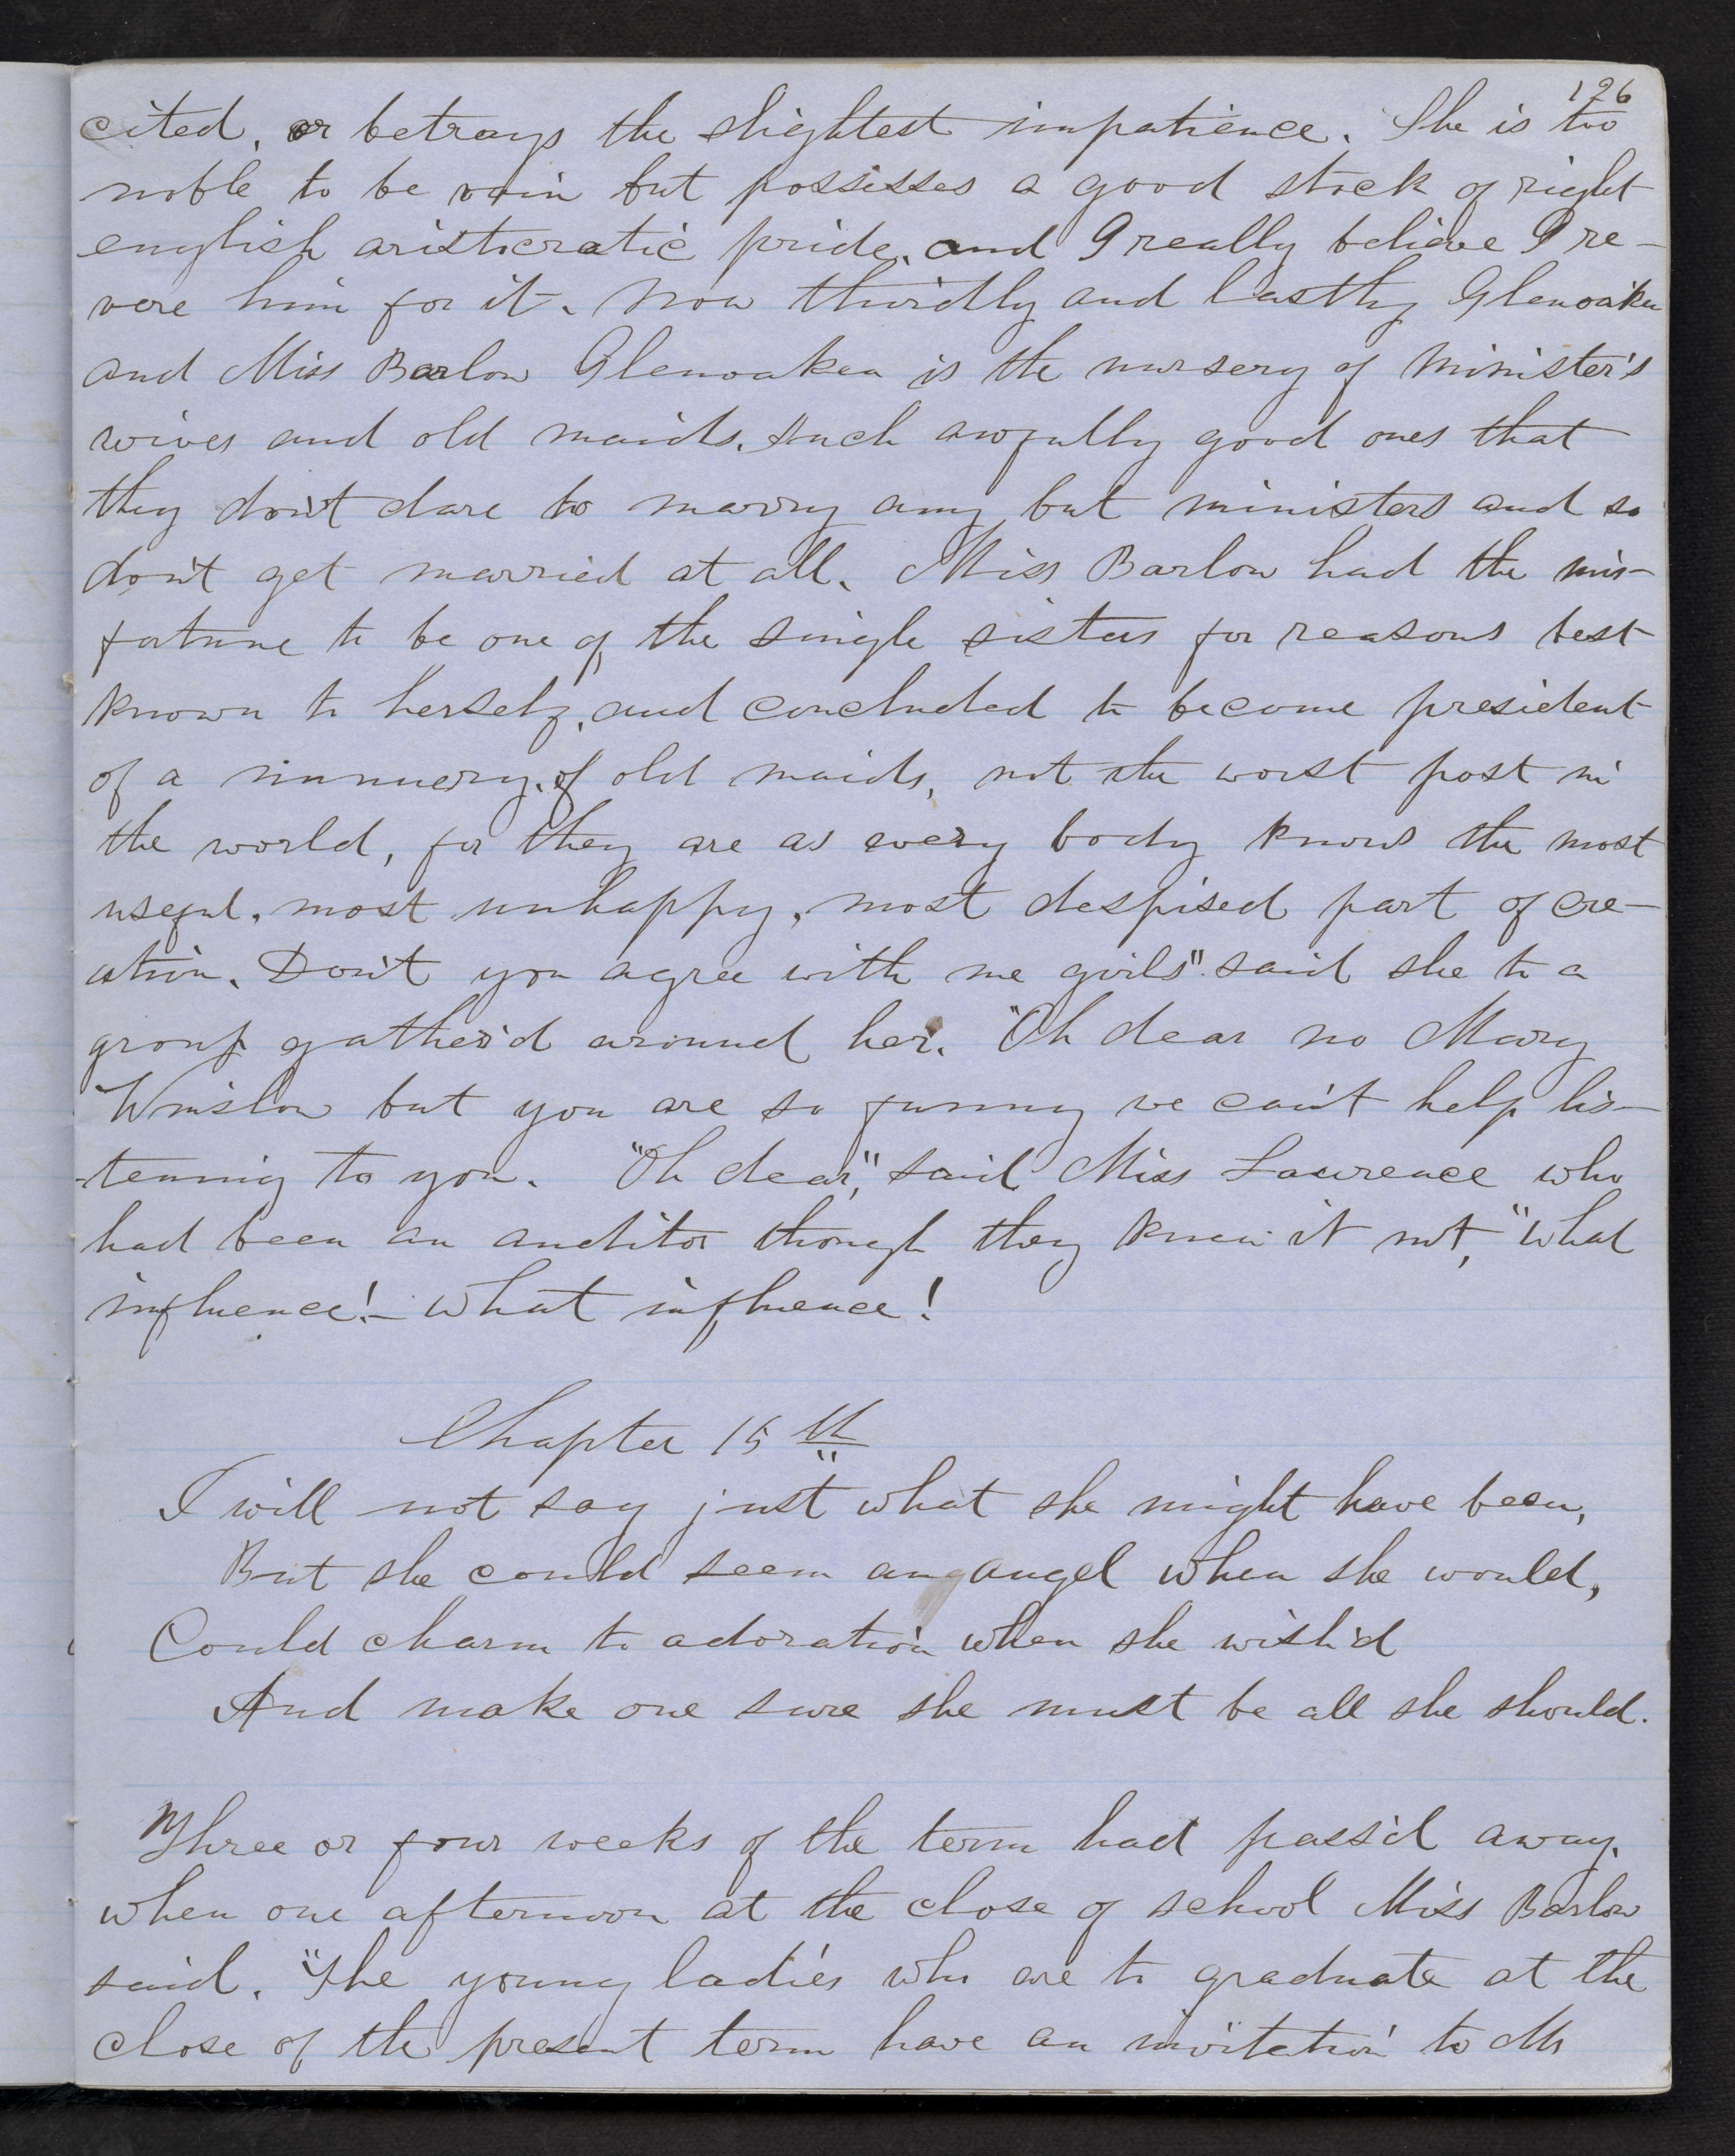 126
cited, or betrays the slightest impatience. She is too
noble to be vain but possesses a good stock of right
english aristocratic pride, and I really believe I re-
vere him for it. Now thirdly and lastly Glenoaken
and Miss Barlow Glenoaken is the nursery of minister's
wives and old maids, such awfully good ones that
they don't dare to marry any but ministers and so
don't get married at all. Miss Barlow had the mis-
fortune to be one of the single sisters for reasons best
known to herself, and concluded to become president
of a nunnery, of old maids, not the worst post in
the world, for they are as every body knows the most
useful, most unhappy, most despised part of cre-
ation. Don't you agree with me girls" said she to a
group gather'd around her. "Oh dear no Mary
Winslow but you are so funny we can't help lis-
-tenning to you. "Oh dear," said Miss Lawrence who
had been an auditor though they knew it not, "what
influence!- what influence!
Chapter 15th
I will not say just what she might have been,
But she could seem an angel when she would,
Could charm to adoration when she wish'd
And make one sure she must be all she should.
Three or four weeks of the term had pass'd away,
when one afternoon at the close of school Miss Barlow
said, "The young ladies who are to graduate at the
close of the present term have an invitation to Mr